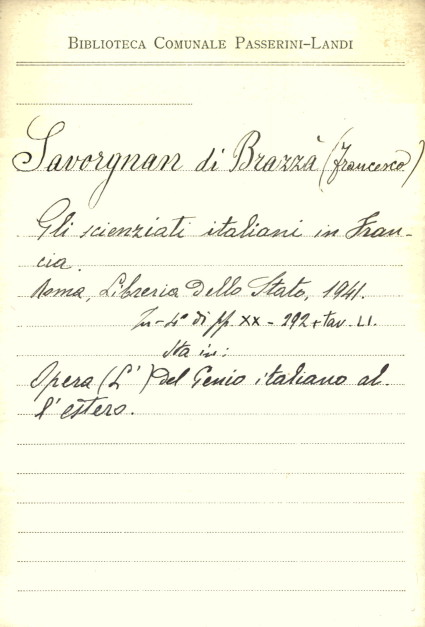 BIBLIOTECA COMUNALE PASSERINI-LANDI
Savorgnan di Brazzà (Francesco)
Gli scienziati italiani in Fran-
cia.
Roma, Libreria dello Stato, 1941.
In-4° di pp. XX-292+tav. LI.
Sta in:
Opera (L') del Genio italiano al-
l'estero.